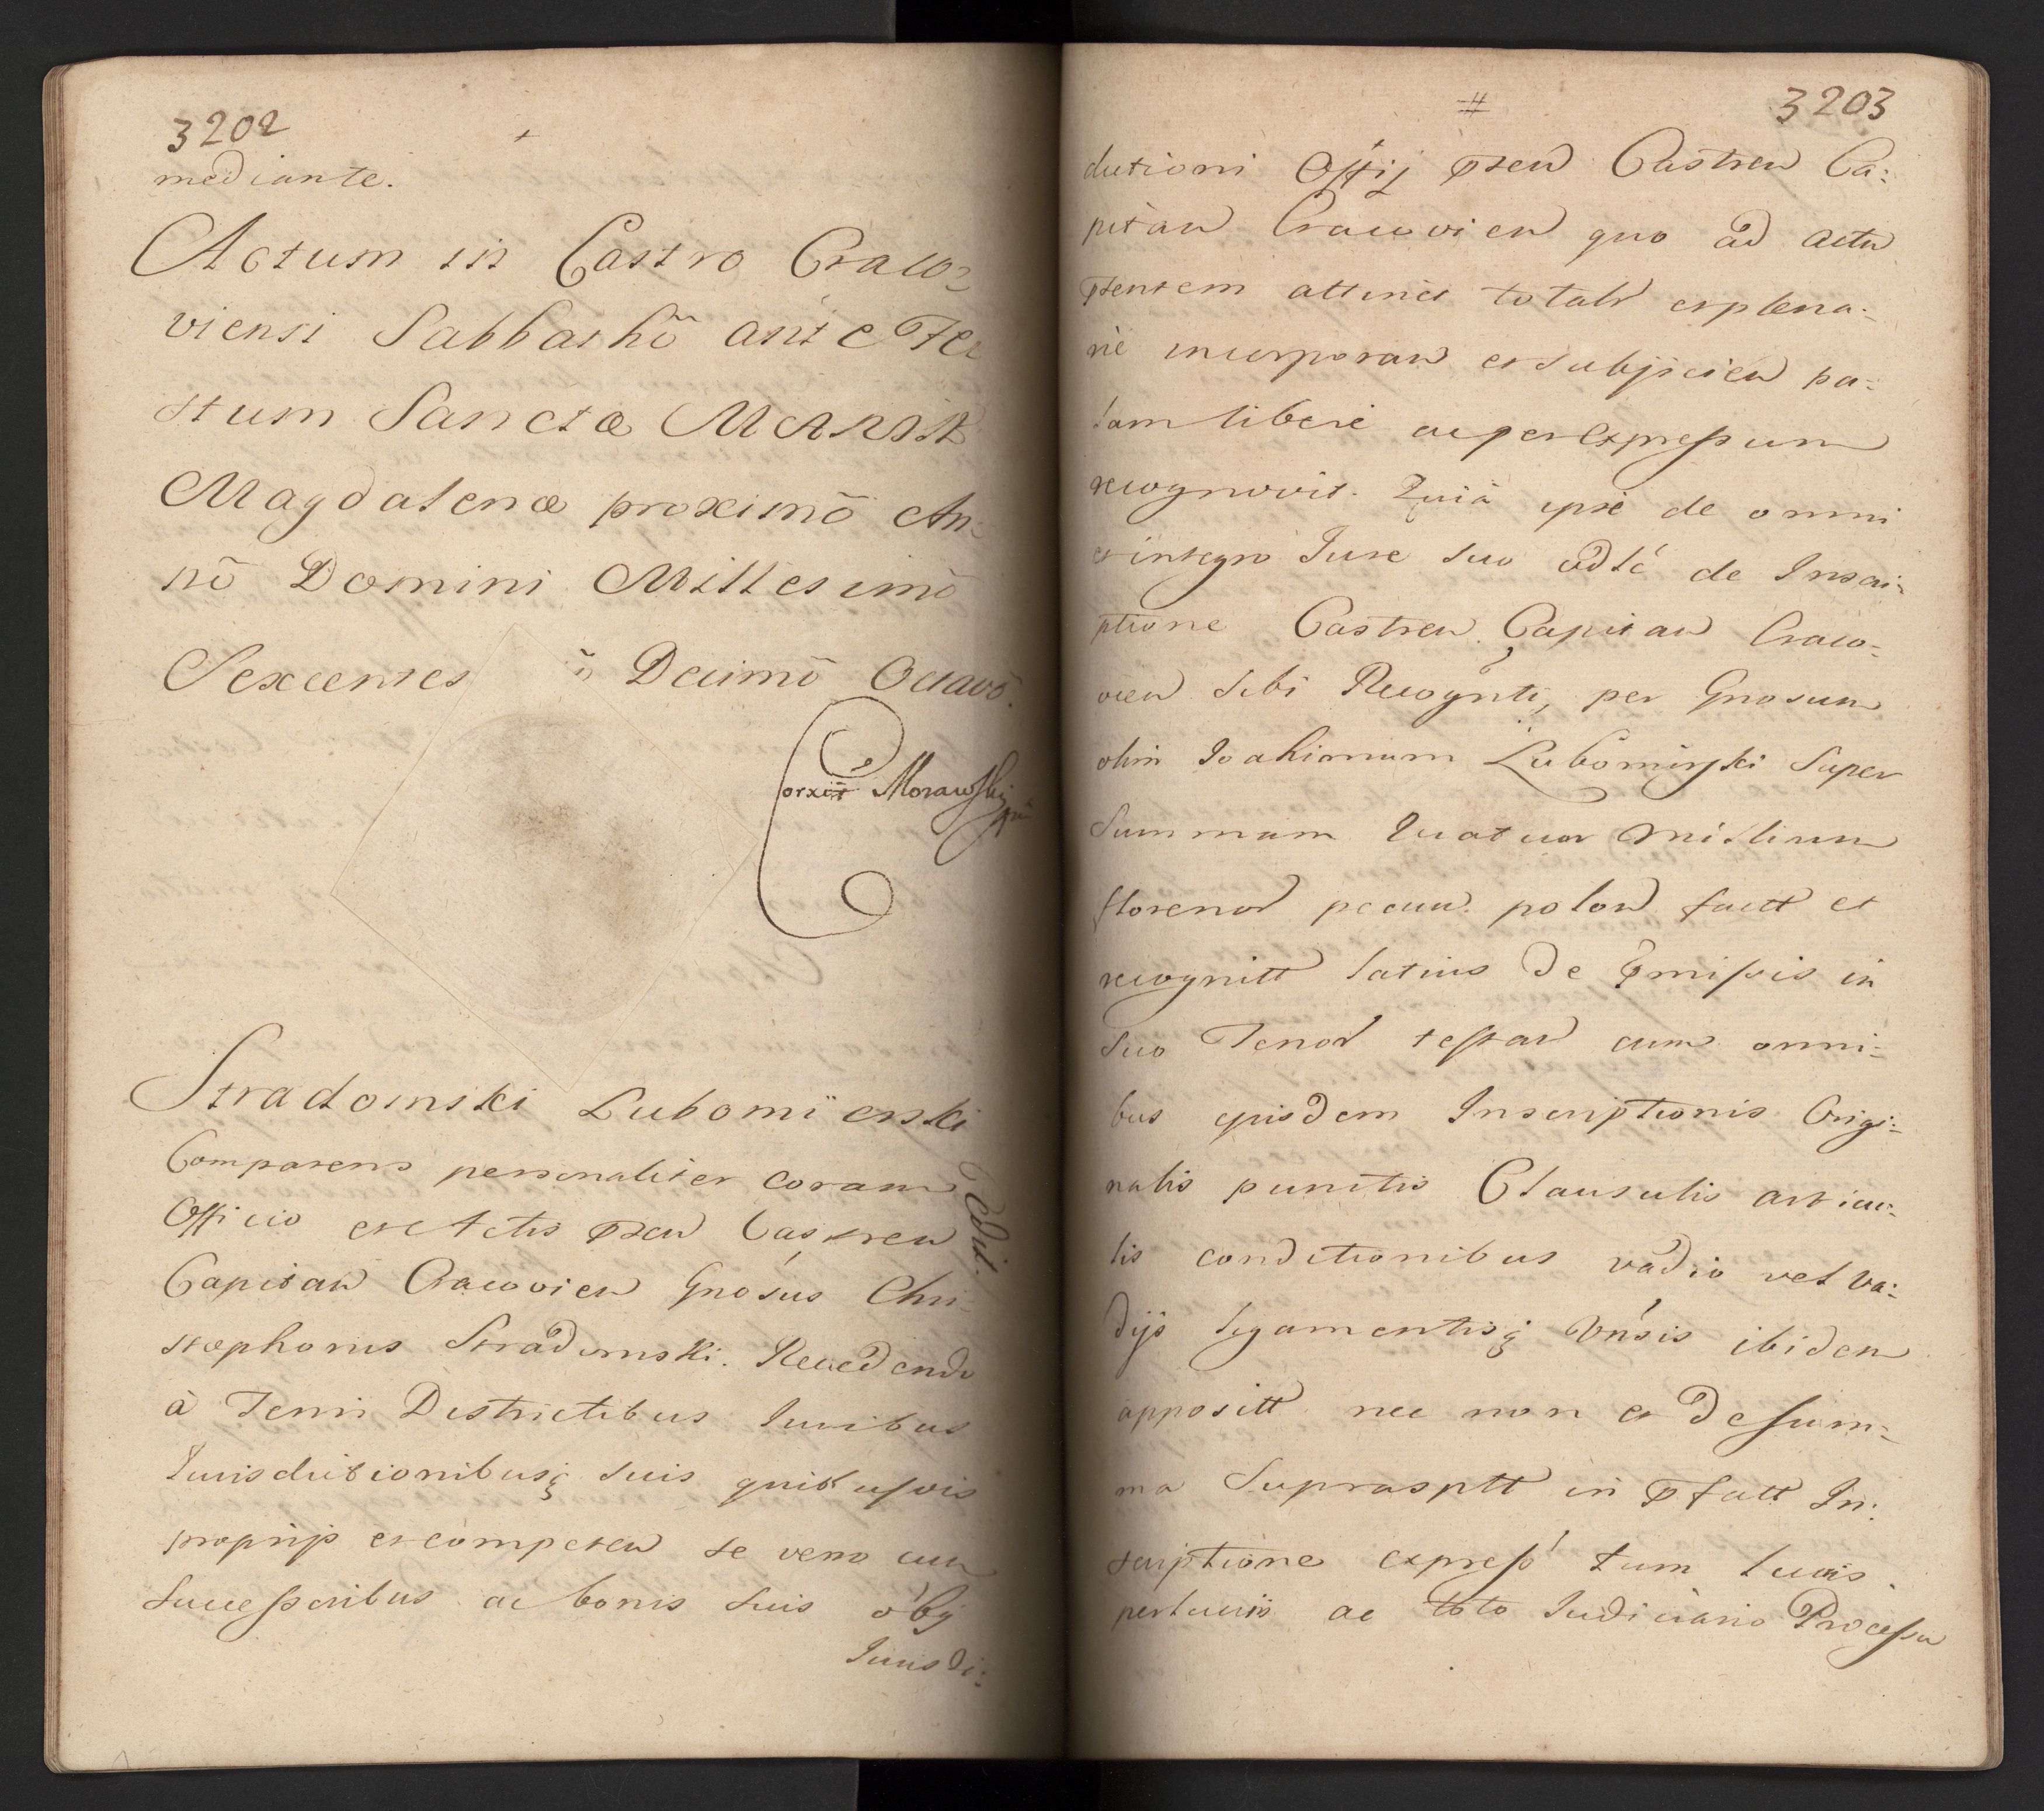 3202
mediante.
Actum in Castro Craco=
viensi Sabbathō ante Fe
stum Sanctæ MARIÆ
Magdalenæ proximō An=
nō Domini Millesimō
Sexcentes ō Decimō Octavō.
Morawski
Stradomski Lubomierski
Comparens personaliter coram
Officio et Actis pñ Castren
Capitan Cracovien Gnosus Chri=
stophorus Stradomski. Recedendo
à Terris Districtibus Iuribus
Iurisdictionibusq suis quibusvis
proprijs et competen se vero cum
Successoribus ac bonis suis
Iurisdi=
edit.
3203
dictioni Offij pñ Castren Ca=
pitan Cracovien quo ad actu
pñtem attinet total et plena=
riè incorporan et subijcien pa=
lam liberè ac per expressum
recognovit. Quià ipse de omni
et integro Iure suo de Inscri=
ptione Castren. Capitan Craco=
vien sibi Recognti, per Gnosum
olim Ioakimum Lubomirski super
Summam Quatuor Millium
florenor pecun. polon factt et
recognitt latius de pmissis in
suo Tenor testan cum omni=
bus ejusdem Inscriptionis Origi=
nalis punctis Clausulis articu=
lis conditionibus vadio vel va=
dijs ligamentisq vnsis ibidem
appositt nec non et de sum=
ma suprasptt in pfatt In=
scriptione express tum lucris
perlucris ac toto Iudiciario Processu